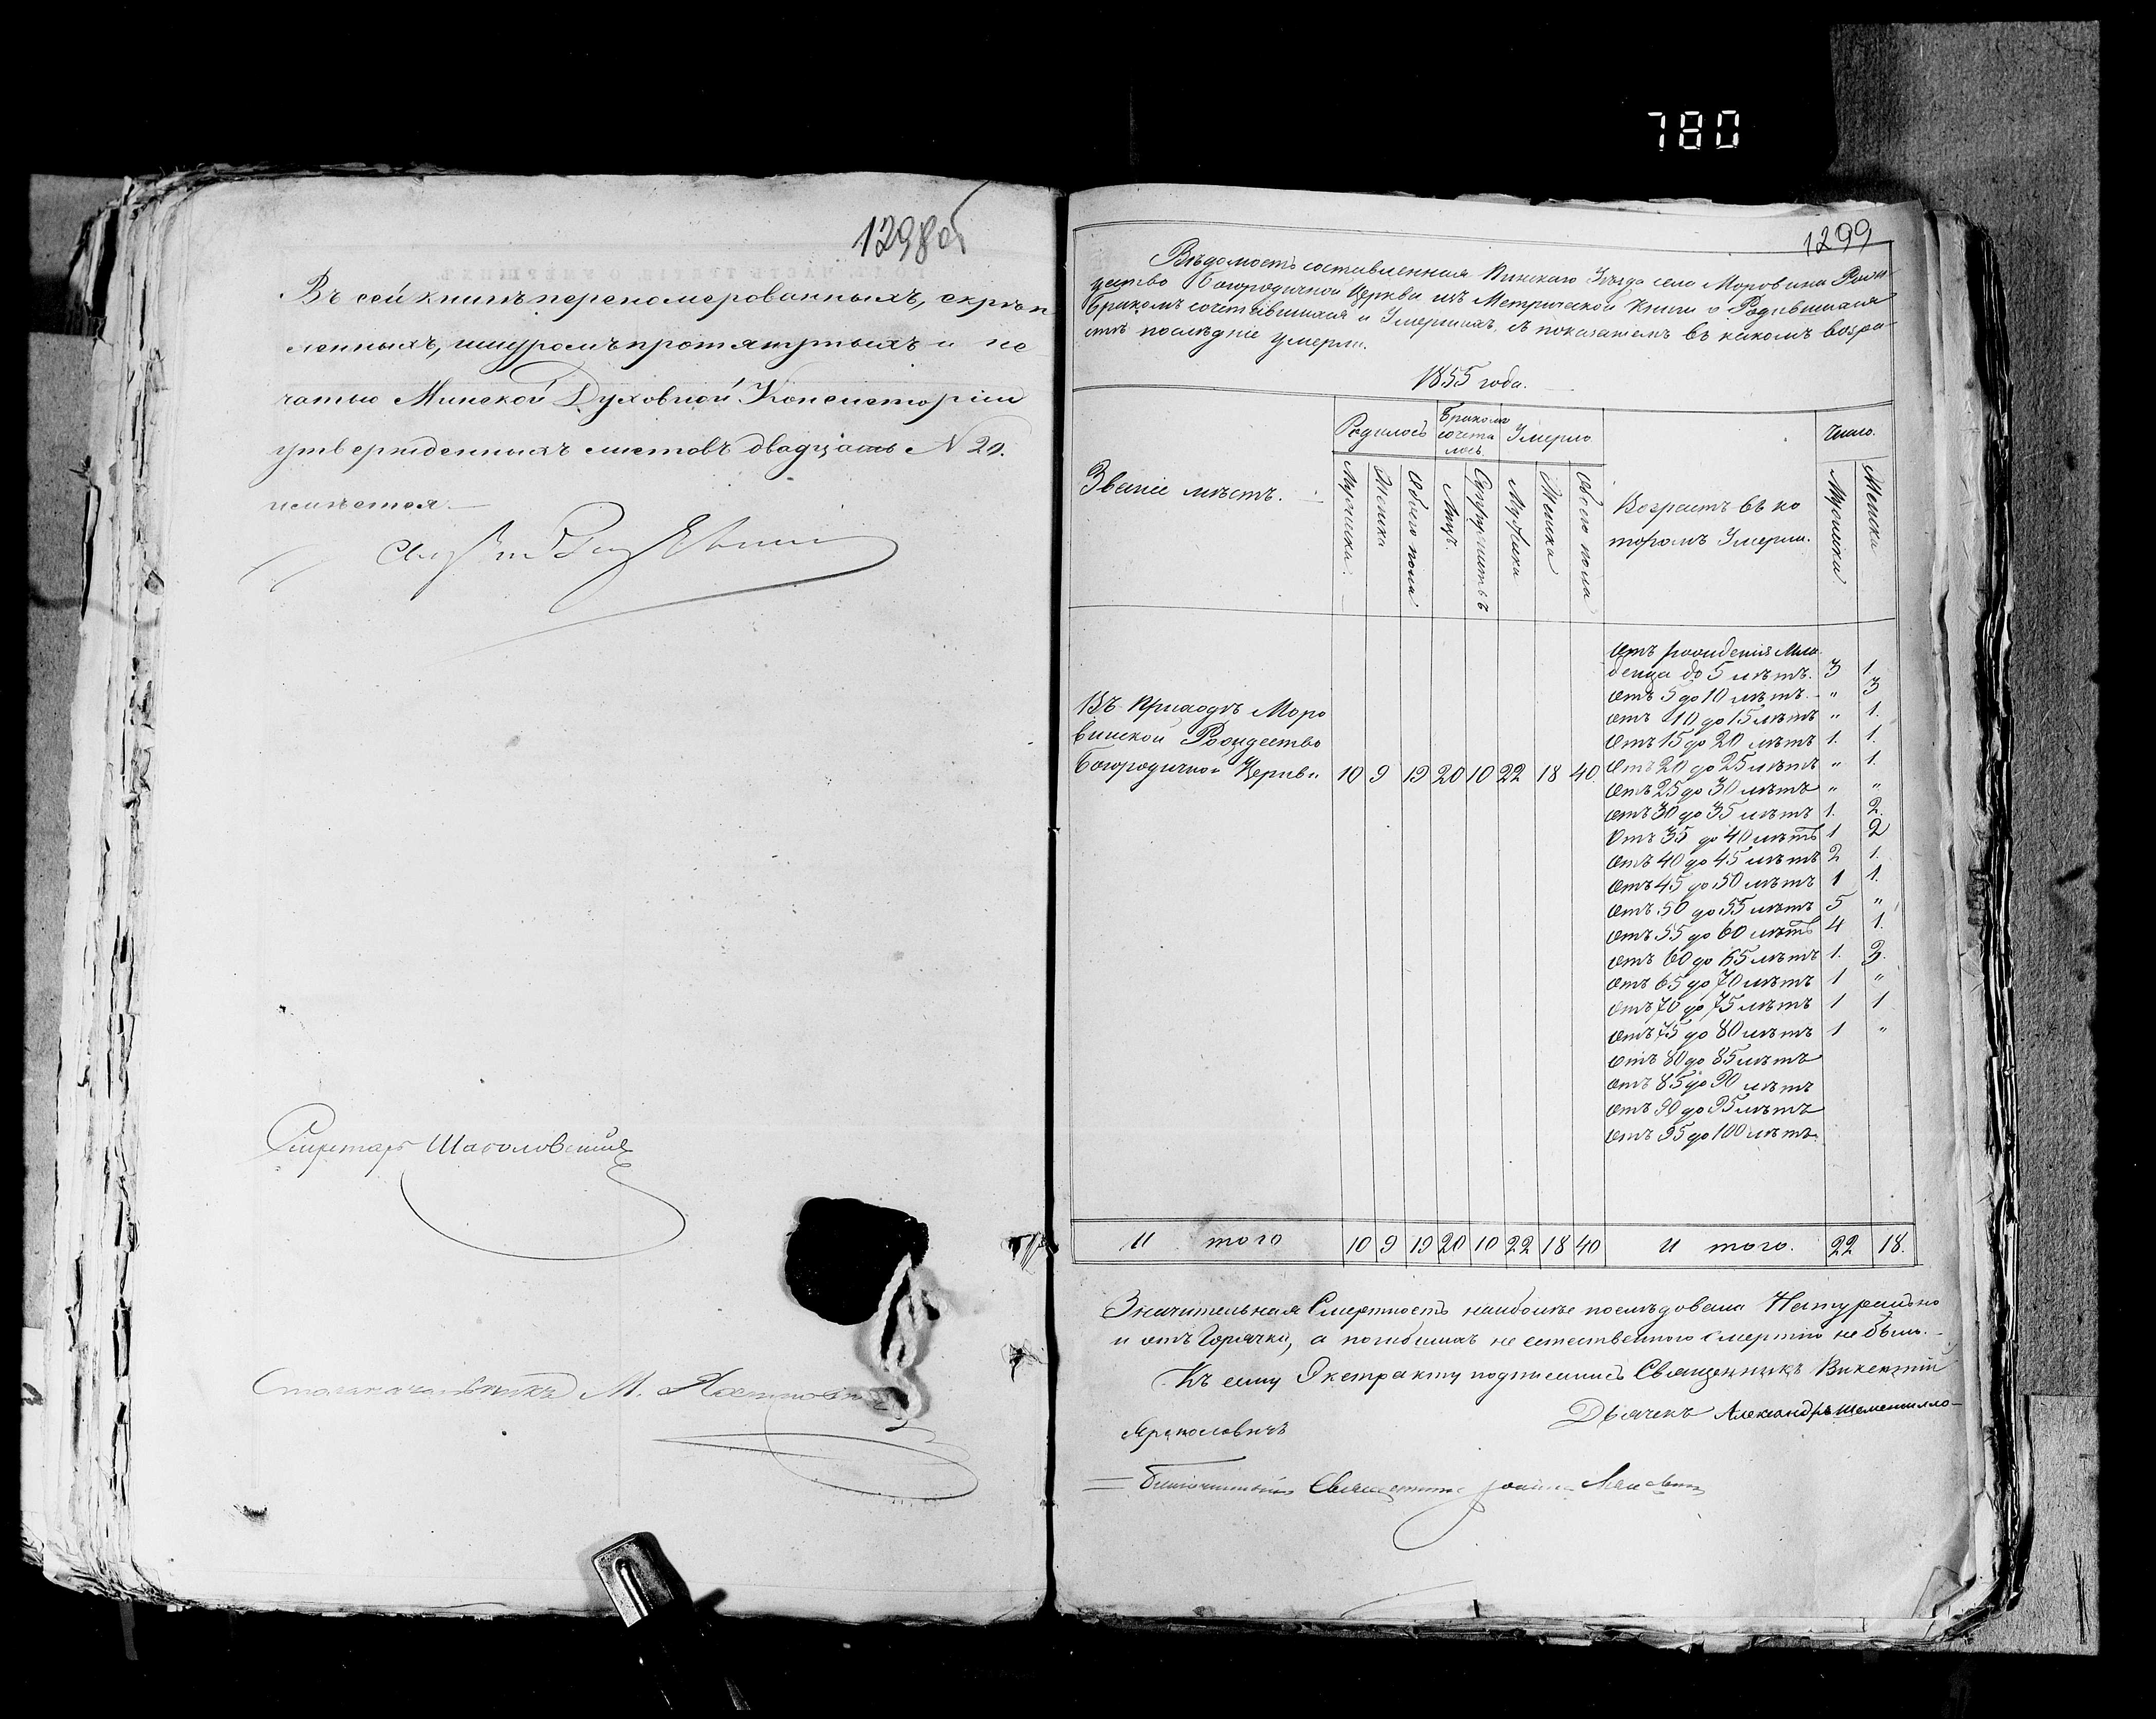 780
1298об
Въ сей книгѣ перономерованныхъ, скрѣп
ленныхъ, шнуромъ протянутыхъ и пе
чатью Минской Духовной Консисторіи
утвержденныхъ листовъ двадцать N 20.
числится.
Секретарь
Столоначальникъ М.
1299
Вѣдомость составленная Пинскаго Уѣзда села Моровина Рож
дество Богородичной Церкви изъ Метрической Книги о Родившихся
Бракомъ сочетавшихся и Умершихъ, съ показаніемъ въ какомъ возра
стѣ послѣдніе умерли.
1855 года.
Званіе мѣстъ.
Родилось
Бракомъ сочета лось
Умерло
Возрастъ въ ко
торомъ Умерли.
Число.
Мужска.
Женска
Обоего пола
Лицъ.
Супружествъ
Мужска
Женска
Обоего пола
Мужска
Женска
Въ Приходѣ Моро
винской Рождество
Богородичной Церкви 10 9 19 20 10 22 18 40.
Отъ рожденія Мла
денца до 5 лѣтъ. 3 1.
Отъ 5 до 10 лѣтъ. " 3
Отъ 10 до 15 лѣтъ " 1.
Отъ 15 до 20 лѣтъ 1. 1.
Отъ 20 до 25 лѣтъ " 1.
Отъ 25 до 30 лѣтъ " "
Отъ 30 до 35 лѣтъ 1. 2.
Отъ 35 до 40 лѣтъ 1 2
Отъ 40 до 45 лѣтъ 2 1.
Отъ 45 до 50 лѣтъ 1 1.
Отъ 50 до 55 лѣтъ 5 "
Отъ 55 до 60 лѣтъ 4 1.
Отъ 60 до 65 лѣтъ 1. 3.
Отъ 65 до 70 лѣтъ 1 "
Отъ 70 до 75 лѣтъ 1 1
Отъ 75 до 80 лѣтъ 1 "
Отъ 80 до 85 лѣтъ
Отъ 85 до 90 лѣтъ
Отъ 90 до 95 лѣтъ
Отъ 95 до 100 лѣтъ.
И того 10 9 19 20 10 22 18 40 И того. 22 18.
Значительная Смертность наиболѣе послѣдовала Натурально
и отъ Горячки, а погибшихъ не естественною смертію не было.
Къ сему Экстракту подписались Священникъ Викентій
Дьячекъ Александръ
Благочинный Священникъ